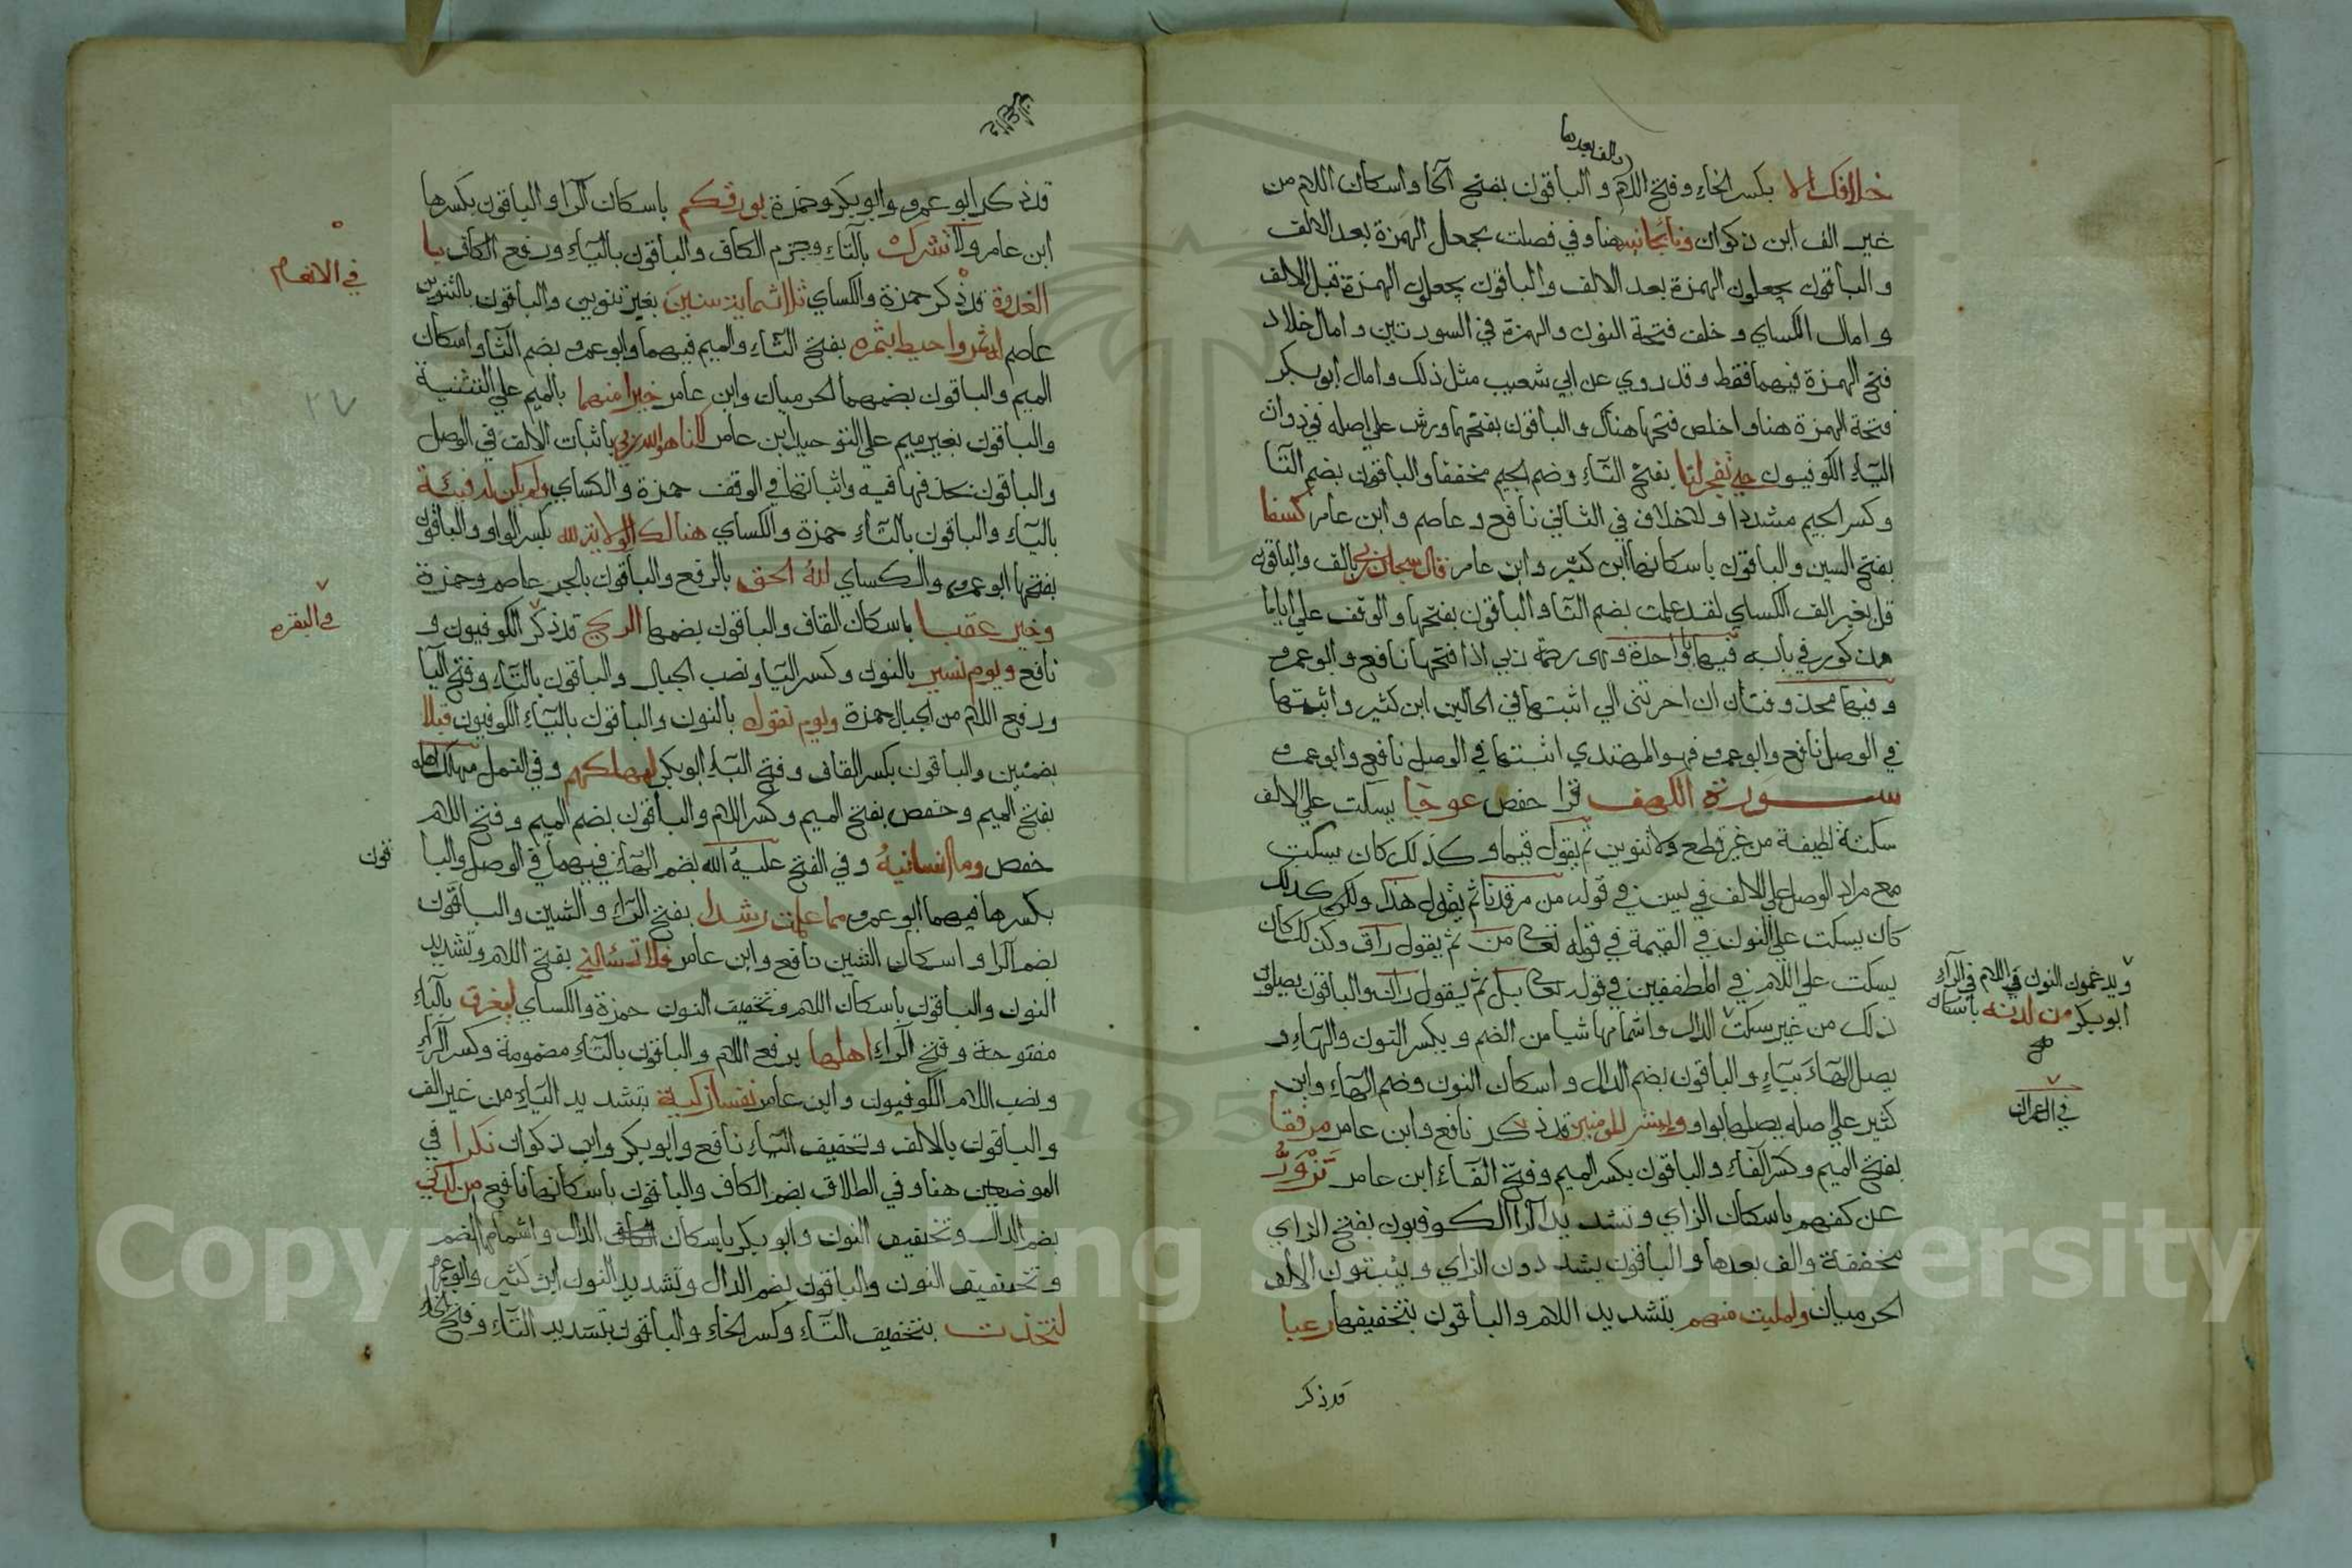 والف بعدها
خلافك الا بكسر الخاء وفتح اللام والباقون بفتح الخا واسكان اللام من
غير الف ابن ذكوان ونا بجانبه هنا وفي فصلت بجعل الهمزة بعد الالف
والباقون يجعلون الهمزة بعد الالف والباقون يجعلون الهمزة قبل الالف
وامال الكساي وخلف فتحة النون والهمزة في السورتين وامال خلاد
فتح الهمزة فيهما فقط وقد روي عن ابي شعيب مثل ذلك وامال ابو بكر
فتحة الهمزة هنا واخلص فتحها هناك والباقون بفتحهما ورش علي اصله في ذوات
الياء الكوفيون حتي تفجر لنا بفتح التاء وضم الجيم مخففا والباقون بضم التا
وكسر الجيم مشددا ولا خلاف في الثاني نافع وعاصم وابن عامر كسفا
بفتح السين والباقون باسكانها ابن كثير وابن عامر قال سبحان ربي بالف والباقون
قل بغير الف الكساي لقد علمت بضم التا والباقون بفتحها والوقف علي اياما
مذكور في بابه فيها يا واحدة وهي رحمة ربي اذا فتحها نافع وابو عمرو
وفيها محذوفتان ان اخرتني الي اثبتها في الحالين ابن كثير واثبتها
في الوصل نافع وابو عمرو فهو المهتدي اثبتها في الوصل نافع وابو عمرو
سورة الكهف قرا حفص عوجا يسكت علي الالف
سكتة لطيفة من غير قطع ولا تنوين ثم يقول قيما وكذلك كان يسكت
مع مراد الوصل علي الالف في يس في قوله من مرقدنا ثم يقول هذا ولكن كذلك
كان يسكت علي النون في القيمة في قوله تعالى من ثم يقول راق وكذلك كان
يسكت علي اللام في المطففين في قوله تعالى بل ثم يقول ران والباقون يصلون
ذلك من غير سكت الدال واشمامها شيا من الضم وبكسر النون والهاء و
يصل الهاء بياء والباقون بضم الدال واسكان النون وضم الهاء وابن
كثير علي اصله يصلها بواو ويبشر المومنين قد ذكر نافع وابن عامر مرفقا
بفتح الميم وكسر الفاء والباقون بكسر الميم وفتح الفاء ابن عامر تزور
عن كهفهم باسكان الزاي وتشديد الرا الكوفيون بفتح الزاي
مخففة والف بعدها والباقون يشددون الزاي ويثبتون الالف
الحرميان ولمليت منهم بتشديد اللام والباقون بتخفيفها رعبا
قد ذكر
ويدغمون النون في اللام في الراء
ابو بكر من لدنه باسكان
صح
في ال عمران
قد ذكر ابو عمرو وابو بكر وحمزة بورقكم باسكان الرا والباقون بكسرها
ابن عامر ولا تشرك بالتاء وجزم الكاف والباقون بالياء ورفع الكاف با
الغدوة قد ذكر حمزة والكساي ثلاثماية سنين بغير تنوين والباقون بالتنوين
عاصم له ثمر واحيط بثمره بفتح الثاء والميم فيهما وابو عمرو بضم الثا واسكان
الميم والباقون بضمهما الحرميان وابن عامر خيرا منهما بالميم علي التثنية
والباقون بغير ميم علي التوحيد ابن عامر لكنا هو الله ربي باثبات الالف في الوصل
والباقون بحذفها فيه واثباتها في الوقف حمزة والكساي ولم يكن له فيئة
بالياء والباقون بالتاء حمزة والكساي هنالك الولاية لله بكسر الواو والباقون
بفتحها ابو عمرو والكساي لله الحق بالرفع والباقون بالجر عاصم وحمزة
وخير عقبا باسكان القاف والباقون بضمها الريح قد ذكر الكوفيون و
نافع ويوم نسير بالنون وكسر اليا ونصب الجبال والباقون بالتاء وفتح اليا
ورفع اللام من الجبال حمزة ويوم نقول بالنون والباقون بالياء الكوفيون قبلا
بضمتين والباقون بكسر القاف وفتح الباء ابو بكر لمهلكهم وفي النمل مهلك اهله
بفتح الميم وحفص بفتح الميم وكسر اللام والباقون بضم الميم وفتح اللام
حفص وما انسانيه وفي الفتح عليه الله بضم الهاء فيهما في الوصل والبا
قون
بكسرها فيهما ابو عمرو مما علمت رشدا بفتح الراء والشين والباقون
بضم الرا واسكان الشين نافع وابن عامر فلا تسالني بفتح اللام وتشديد
النون والباقون باسكان اللام وتخفيف النون حمزة والكساي ليغرق بالياء
مفتوحة وفتح الراء اهلها برفع اللام والباقون بالتاء مضمومة وكسر الراء
ونصب اللام الكوفيون وابن عامر نفسا زكية بتشديد الياء من غير الف
والباقون بالالف وتخفيف الياء نافع وابو بكر وابن ذكوان نكرا في
الموضعين هنا وفي الطلاق بضم الكاف والباقون باسكانها نافع من لدني
بضم الدال وتخفيف النون وابو بكر باسكان الدال واشمامها الضم
وتخفيف النون والباقون بضم الدال وتشديد النون ابن كثير وابو عمرو
لتخذت بتخفيف التاء وكسر الخاء والباقون بتشديد التاء وفتح الخاء
في الانعام
٢٧
في البقره
Copyright © King Saud University
1957